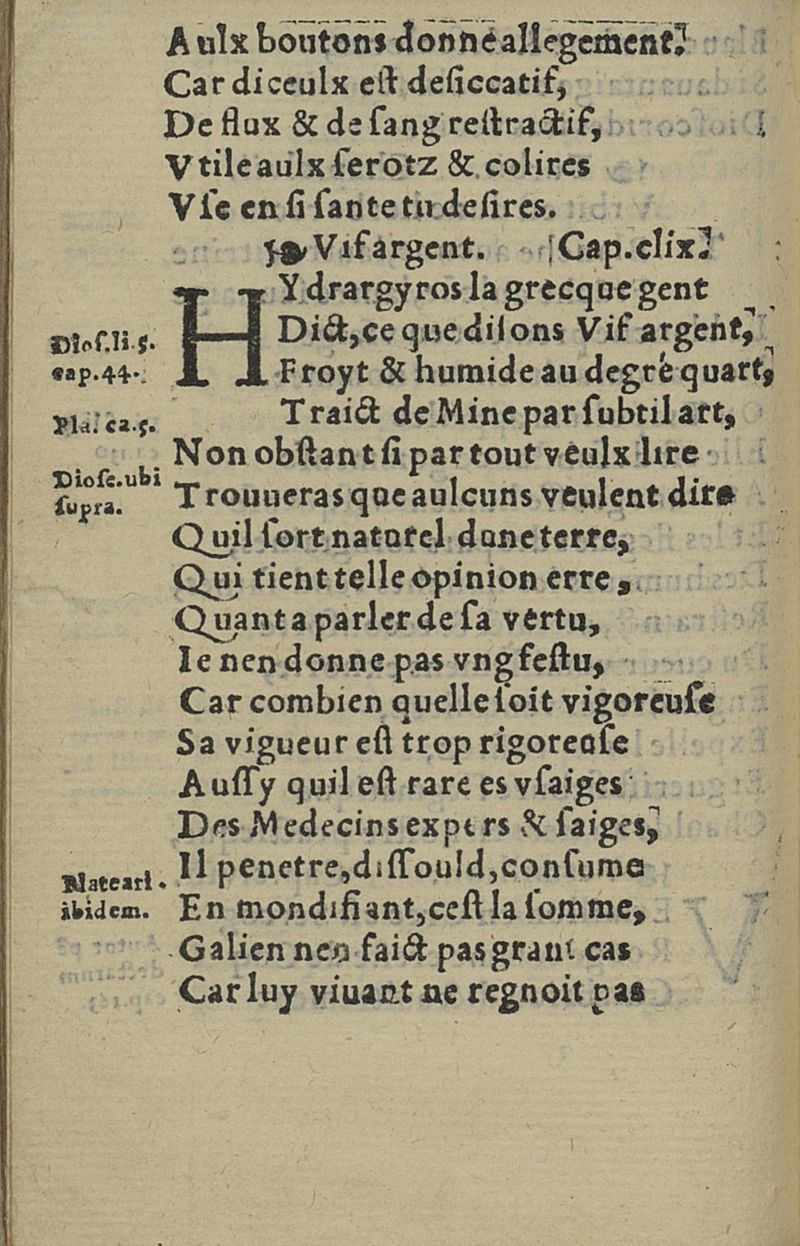 Aulx boutons donne allegement.
Car diceulx est desiccatif,
De flux & de sang restractif,
Vtile aulx serotz & colires
Vse en si sante tu desires.
Vif argent. Cap.clix.
HYdrargyros la grecque gent
Dict, ce que disons Vif argent,
Dios.li.5.
cap.44.
Froyt & humide au degré quart,
Traict de Mine par subtil art,
Pla. ca.5.
Non obstant si par tout veulx lire
Diosc.ubi
supra.
Trouueras que aulcuns veulent dire
Quil sort naturel dune terre,
Qui tient telle opinion erre,
Quant a parler de sa vertu,
Ie nen donne pas vng festu,
Car combien quelle soit vigoreuse
Sa vigueur est trop rigoreuse
Aussy quil est rare es vsaiges
Des Medecins expers & saiges,
Il penetre, dissould, consume
Mateari.
ibidem.
En mondifiant, cest la somme,
Galien nen faict pas grant cas
Car luy viuant ne regnoit pas